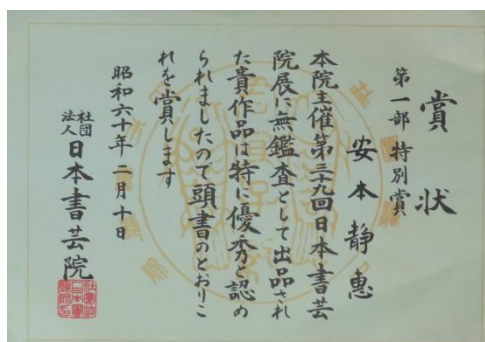 賞状
第一部 特別賞
安本静惠
本院主催第三九回日本書芸
院展に無鑑査として出品され
た貴作品は特に優秀と認め
られましたので頭書のとおりこ
れを賞します
昭和六十年二月十日
社団法人日本書芸院